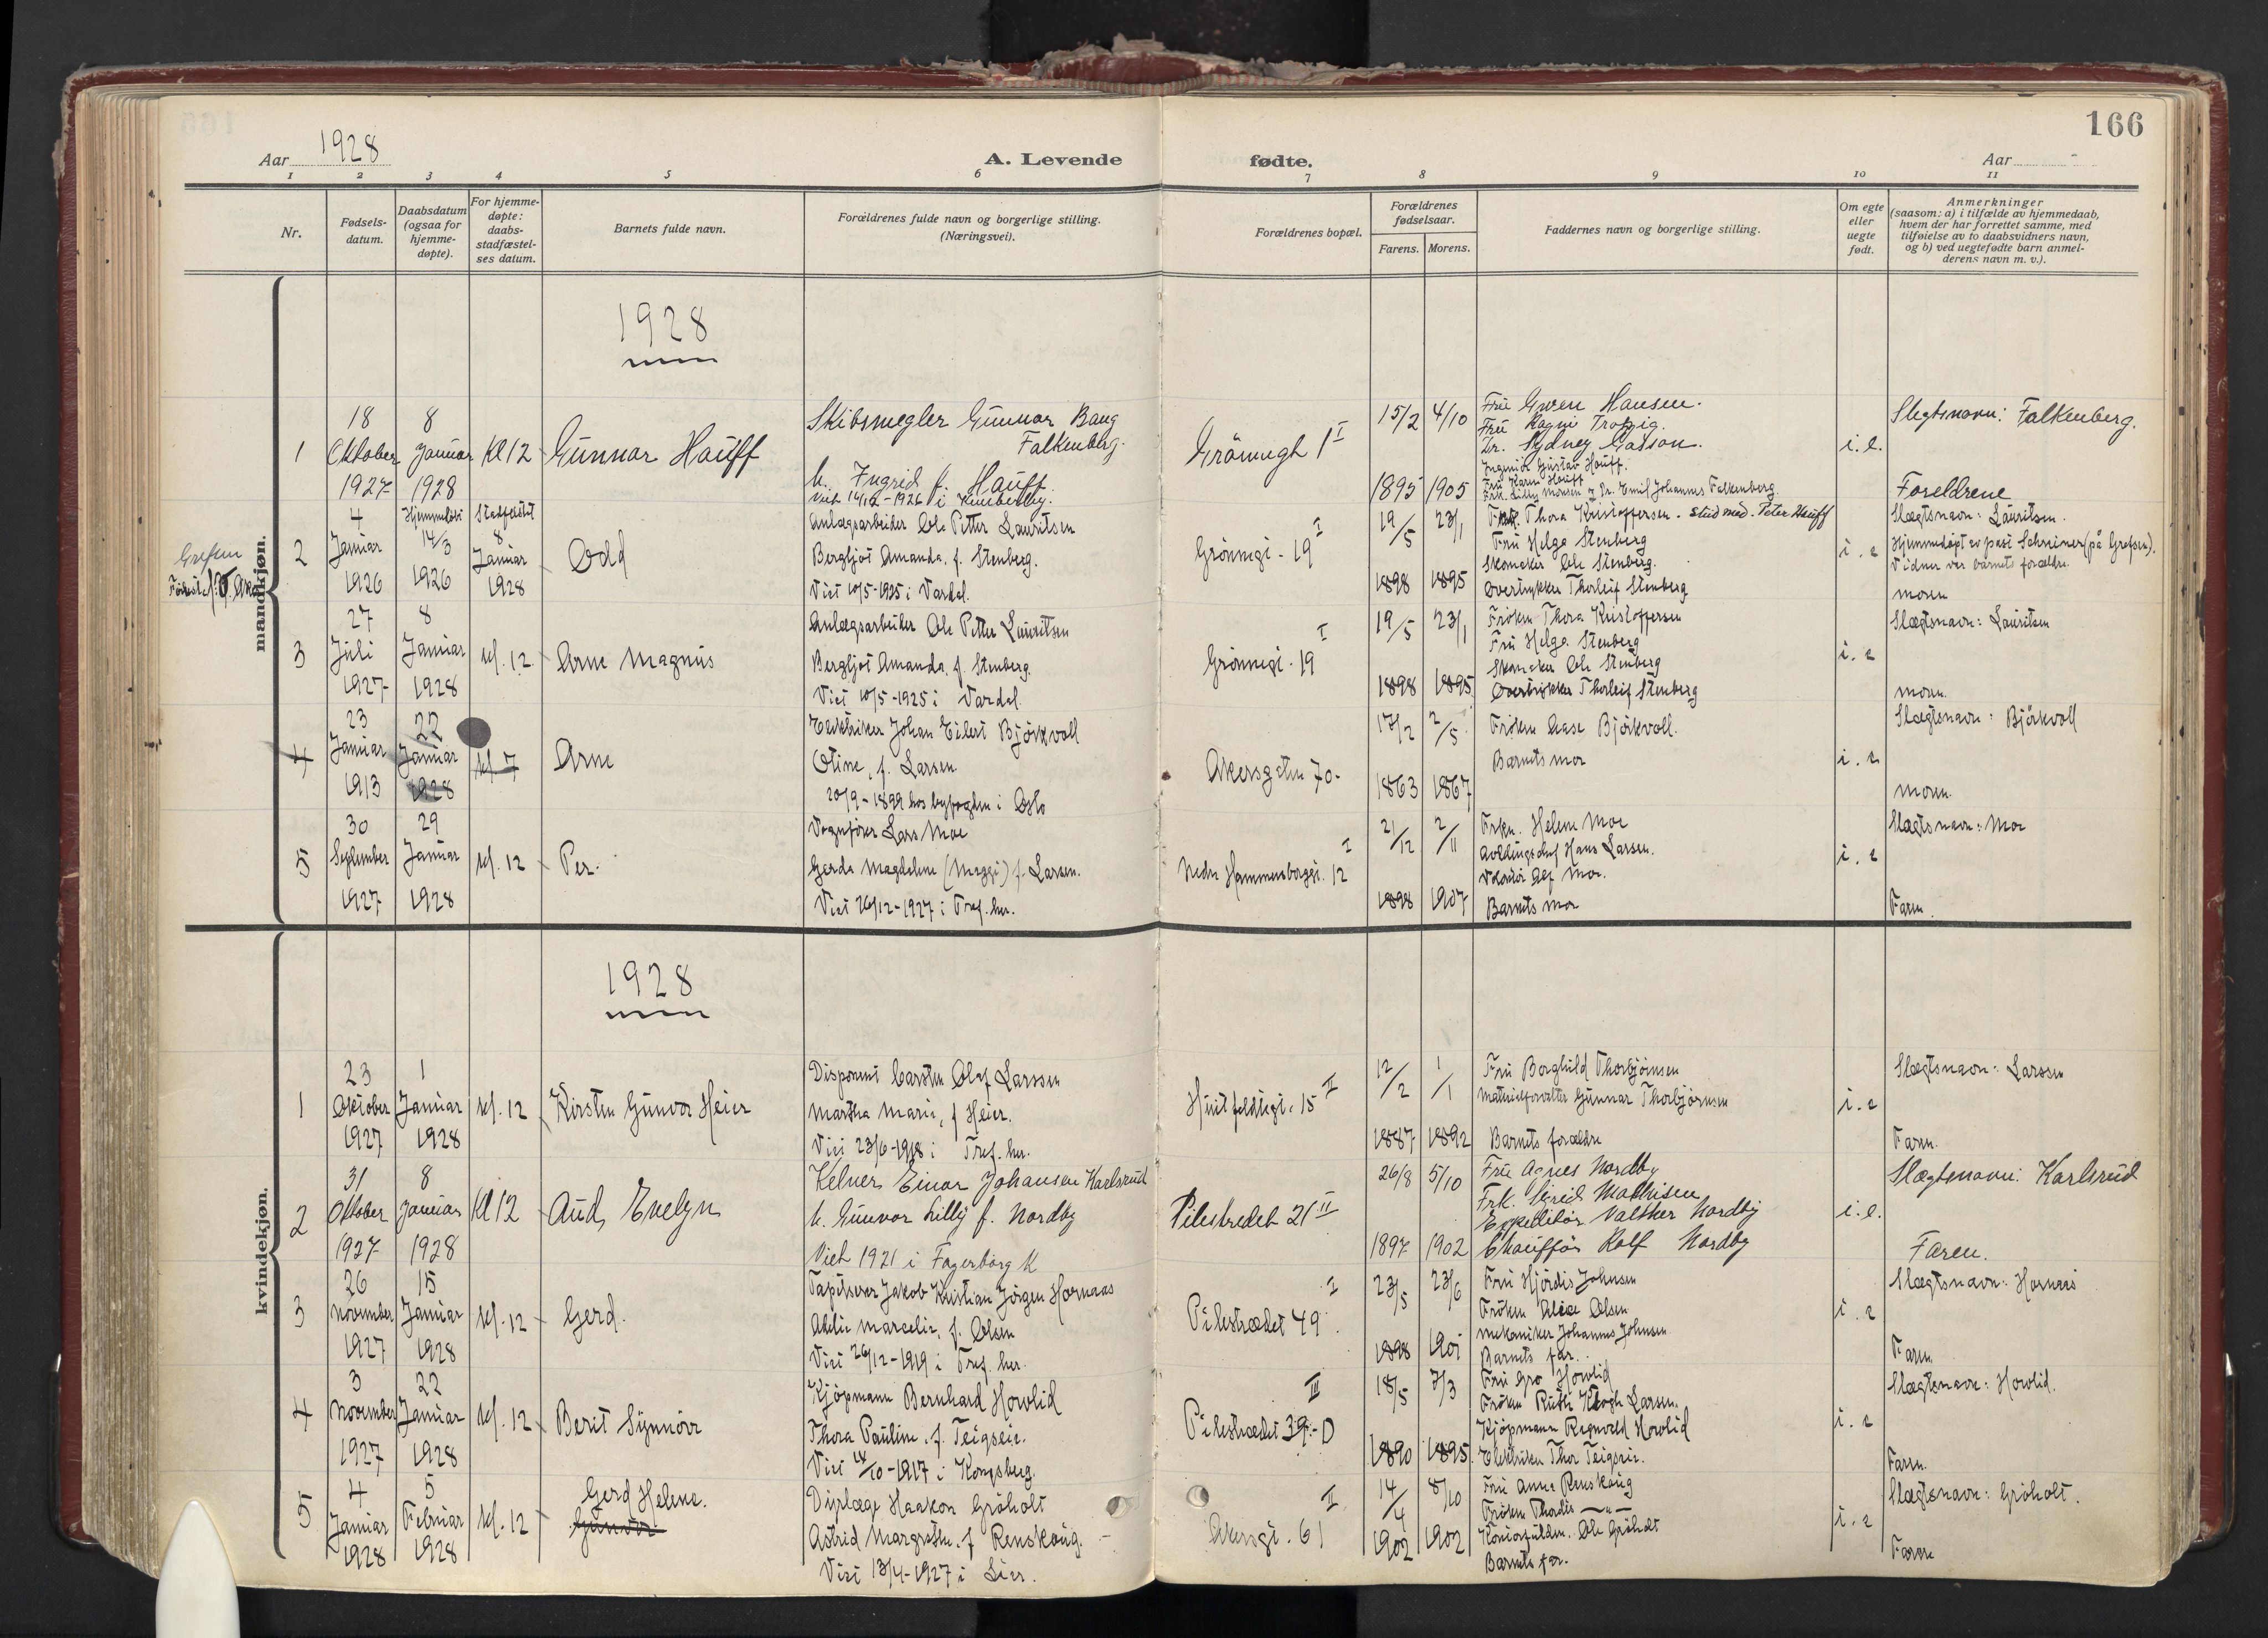 166
Aar 1928
A. Levende fødte.
Aar
1 2 3 4 5 6 7 8 9 10 11
Nr.
Fødsels-
datum.
Daabsdatum
(ogsaa for
hjemme-
døpte).
For hjemme-
døpte:
daabs-
stadfæstel-
ses datum.
Barnets fulde navn.
Forældrenes fulde navn og borgerlige stilling.
(Næringsvei).
Forældrenes bopæl.
Forældrenes
fødselsaar.
Farens. Morens.
Faddernes navn og borgerlige stilling.
Om egte
eller
uegte
født.
Anmerkninger
(saasom: a) i tilfælde av hjemmedaab,
hvem der har forrettet samme, med
tilføielse av to daabsvidners navn,
og b) ved uegtefødte barn anmel-
derens navn m. v.).
mandkjøn.
1928
1
18
Oktober
1927
8
Januar
1928
Kl 12
Gunnar Hauff
Skibsmegler Gunnar Bang
Falkenberg.
h. Ingrid f. Hauff
Grönnegt 1 I
15/2
1895
4/10
1905
Fru Gwen Hansen.
Fru Ragni Trotzig.
Dr. Sydney Gasson.
Ingeniör Gustav Hauff.
Fru Karen Hauff
Frk. Lilly Monsen & Dr. Emil Johannes Falkenberg
i. e.
Slegtsnavn: Falkenberg.
Foreldrene
Grefsen
2
4
Januar
1926
Hjemmedöbt
14/3
1926
Stadfestet
8
Januar
1928
Odd
Anlægsarbeider Ole Petter Lauritsen
Bergljot Amanda, f. Stenberg.
Viet 10/5-1925 i Vardal.
Grönnegt. 19 I
19/5
1898
23/1
1895
Frk. Thora Kristoffersen. stud med. Peter Hauff
Fru Helga Stenberg
Skomaker Ole Stenberg.
Overtrykker Thorleif Stenberg
i. e
Slægtsnavn: Lauritsen.
Hjemmedöpt av past Schreiner (på Grefsen).
Vidner var barnets forældre.
moren
3
27
Juli
1927
8
Januar
1928
kl. 12
Arne Magnus
Anlægsarbeider Ole Petter Lauritsen
Bergljot Amanda, f. Stenberg.
Viet 10/5-1925 i Vardal.
Grönnegt. 19 I
19/5
1898
23/1
1895
Fröken Thora Kristoffersen
Fru Helga Stenberg
Skomaker Ole Stenberg
Overtrykker Thorleif Stenberg
i. e
Slægtsnavn: Lauritsen
moren.
4
23
Januar
1913
22
Januar
1928
kl. 7
Arne
Elektriker Johan Eilert Björkvoll
Otine, f. Larsen
20/9-1899 hos byfogden i Oslo
Akersgaten 70.
17/2
1863
2/5
1867
Fröken Aase Björkvoll.
Barnets mor
i. e
Slægtsnavn: Björkvoll
moren.
5
30
September
1927
29
Januar
1928
kl. 12
Per.
Vognförer Lars Moe
Gerda Magdalene (Maggi) f. Larsen.
Viet 26/12-1927 i Tref. her.
Nedre Hammersborggt. 12 I
21/12
1898
2/11
1907
Frkn. Helene Moe
Avdelingschef Hans Larsen.
Alf Moe.
Barnets mor
i. e
Slægtsnavn: Moe
Faren.
kvindekjøn.
1928
1
23
Oktober
1927
1
Januar
1928
kl. 12
Kirsten Gunvor Heier
Disponent Carsten Olaf Larssen
Martha Marie, f Heier.
Viet 23/6-1918 i Tref. her.
Huitfeldtsgt. 15 II
12/2
1887
1/1
1892
Fru Borghild Thorbjörnsen
Materialforvalter Gunnar Thorbjörnsen
Barnets forældre
i. e
Slægtsnavn: Larssen
Faren.
2
31
Oktober
1927
8
Januar
1928
Kl 12
Aud, Evelyn
Kelner Einar Johansen Karlsrud
h. Gunvor Lilly f. Nordby
Viet 1921 i Fagerborg K
Pilestredet 21 II
26/8
1897
5/10
1902
Fru Agnes Nordby
Frk. Sigrid Mathisen
Expeditör Valther Nordby
Chaufför Rolf Nordby
i. e.
Slægtsnavn: Karlsrud
Faren.
3
26
November
1927
15
Januar
1928
kl. 12
Gerd.
Tapetserer Jakob Kristian Jörgen Hornaas
Marcelie, f. Olsen
Viet 26/12-1919 i Tref. her.
Pilestrædet 49 I
23/5
1898
23/6
1901
Fru Hjördis Johnsen
Fröken Alice Olsen
Mekaniker Johannes Johnsen
Barnets far.
i. e
Slægtsnavn: Hornaas
Faren
4
3
November
1927
22
Januar
1928
kl. 12
Berit Synnöve
Kjöpmann Bernhard Hovlid
Thora Pauline, f. Teigseie.
Viet 14/10-1917 i Kongsberg.
Pilestrædet 39-D III
18/5
1890
7/3
1895
Fru Gro Hovlid
Fröken Ruth Krogh Larsen.
Kjöpmann Ragnvald Hovlid
Elektriker Thor Teigseie.
i. e
Slægtsnavn: Hovlid.
Faren.
5
4
Januar
1928
5
Februar
1928
kl. 12
Gerd Helene.
Gunvor
Haakon Gröholt
Astrid Margrethe, f Renskaug.
Viet 13/4-1927 i Lier.
Akersgt. 61 II
14/4
1902
8/10
1902
Fru Anna Renskaug
Fröken Thordis —"—
Ole Gröholt
Barnets far.
i. e
Slægtsnavn: Gröholt.
Faren